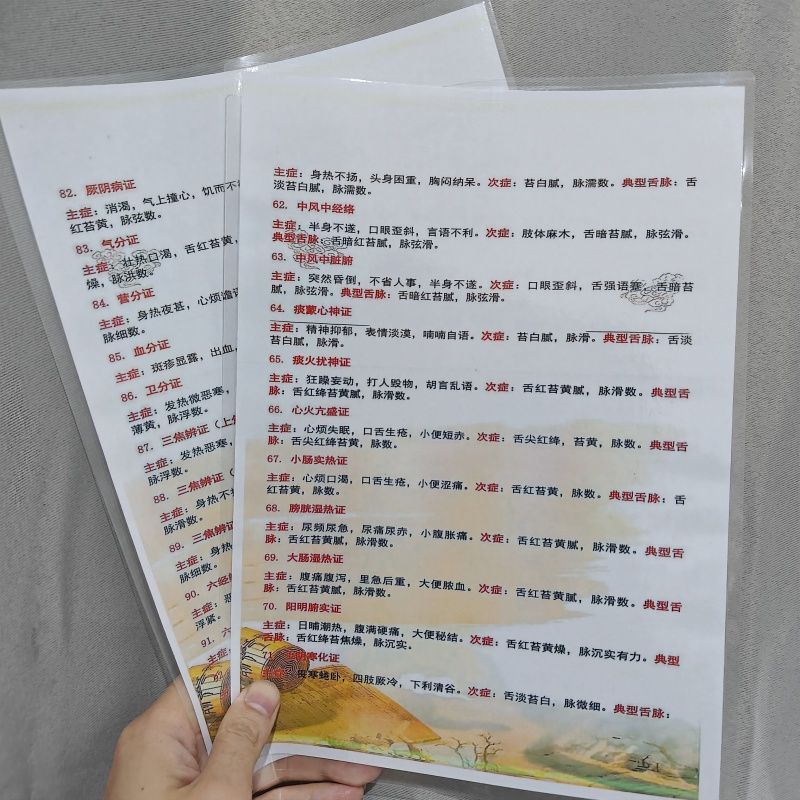 82. 厥阴病证
主症：消渴，气上撞心，饥而不
红苔黄，脉弦数。
83. 气分证
主症：壮热口渴，舌红苔黄，
燥，脉洪数。
84. 营分证
主症：身热夜甚，心烦谵
脉细数。
85. 血分证
主症：斑疹显露，出血，
86. 卫分证
主症：发热微恶寒，
薄黄，脉浮数。
87. 三焦辨证（上
主症：发热恶寒，
脉浮数。
88. 三焦辨证（
主症：身热不
脉滑数。
89. 三焦辨证
主症：身热
脉细数。
90. 六经
主症：恶
浮紧。
91. 六
主症：身热不扬，头身困重，胸闷纳呆。次症：苔白腻，脉濡数。典型舌脉：舌
淡苔白腻，脉濡数。
62. 中风中经络
主症：半身不遂，口眼歪斜，言语不利。次症：肢体麻木，舌暗苔腻，脉弦滑。
典型舌脉：舌暗红苔腻，脉弦滑。
63. 中风中脏腑
主症：突然昏倒，不省人事，半身不遂。次症：口眼歪斜，舌强语謇，舌暗苔
腻，脉弦滑。典型舌脉：舌暗红苔腻，脉弦滑。
64. 痰蒙心神证
主症：精神抑郁，表情淡漠，喃喃自语。次症：苔白腻，脉滑。典型舌脉：舌淡
苔白腻，脉滑。
65. 痰火扰神证
主症：狂躁妄动，打人毁物，胡言乱语。次症：舌红苔黄腻，脉滑数。典型舌
脉：舌红绛苔黄腻，脉滑数。
66. 心火亢盛证
主症：心烦失眠，口舌生疮，小便短赤。次症：舌尖红绛，苔黄，脉数。典型舌
脉：舌尖红绛苔黄，脉数。
67. 小肠实热证
主症：心烦口渴，口舌生疮，小便涩痛。次症：舌红苔黄，脉数。典型舌脉：舌
红苔黄，脉数。
68. 膀胱湿热证
主症：尿频尿急，尿痛尿赤，小腹胀痛。次症：舌红苔黄腻，脉滑数。典型舌
脉：舌红苔黄腻，脉滑数。
69. 大肠湿热证
主症：腹痛腹泻，里急后重，大便脓血。次症：舌红苔黄腻，脉滑数。典型舌
脉：舌红苔黄腻，脉滑数。
70. 阳明腑实证
主症：日晡潮热，腹满硬痛，大便秘结。次症：舌红苔黄燥，脉沉实有力。典型
舌脉：舌红绛苔焦燥，脉沉实。
阴寒化证
主症：畏寒蜷卧，四肢厥冷，下利清谷。次症：舌淡苔白，脉微细。典型舌脉：